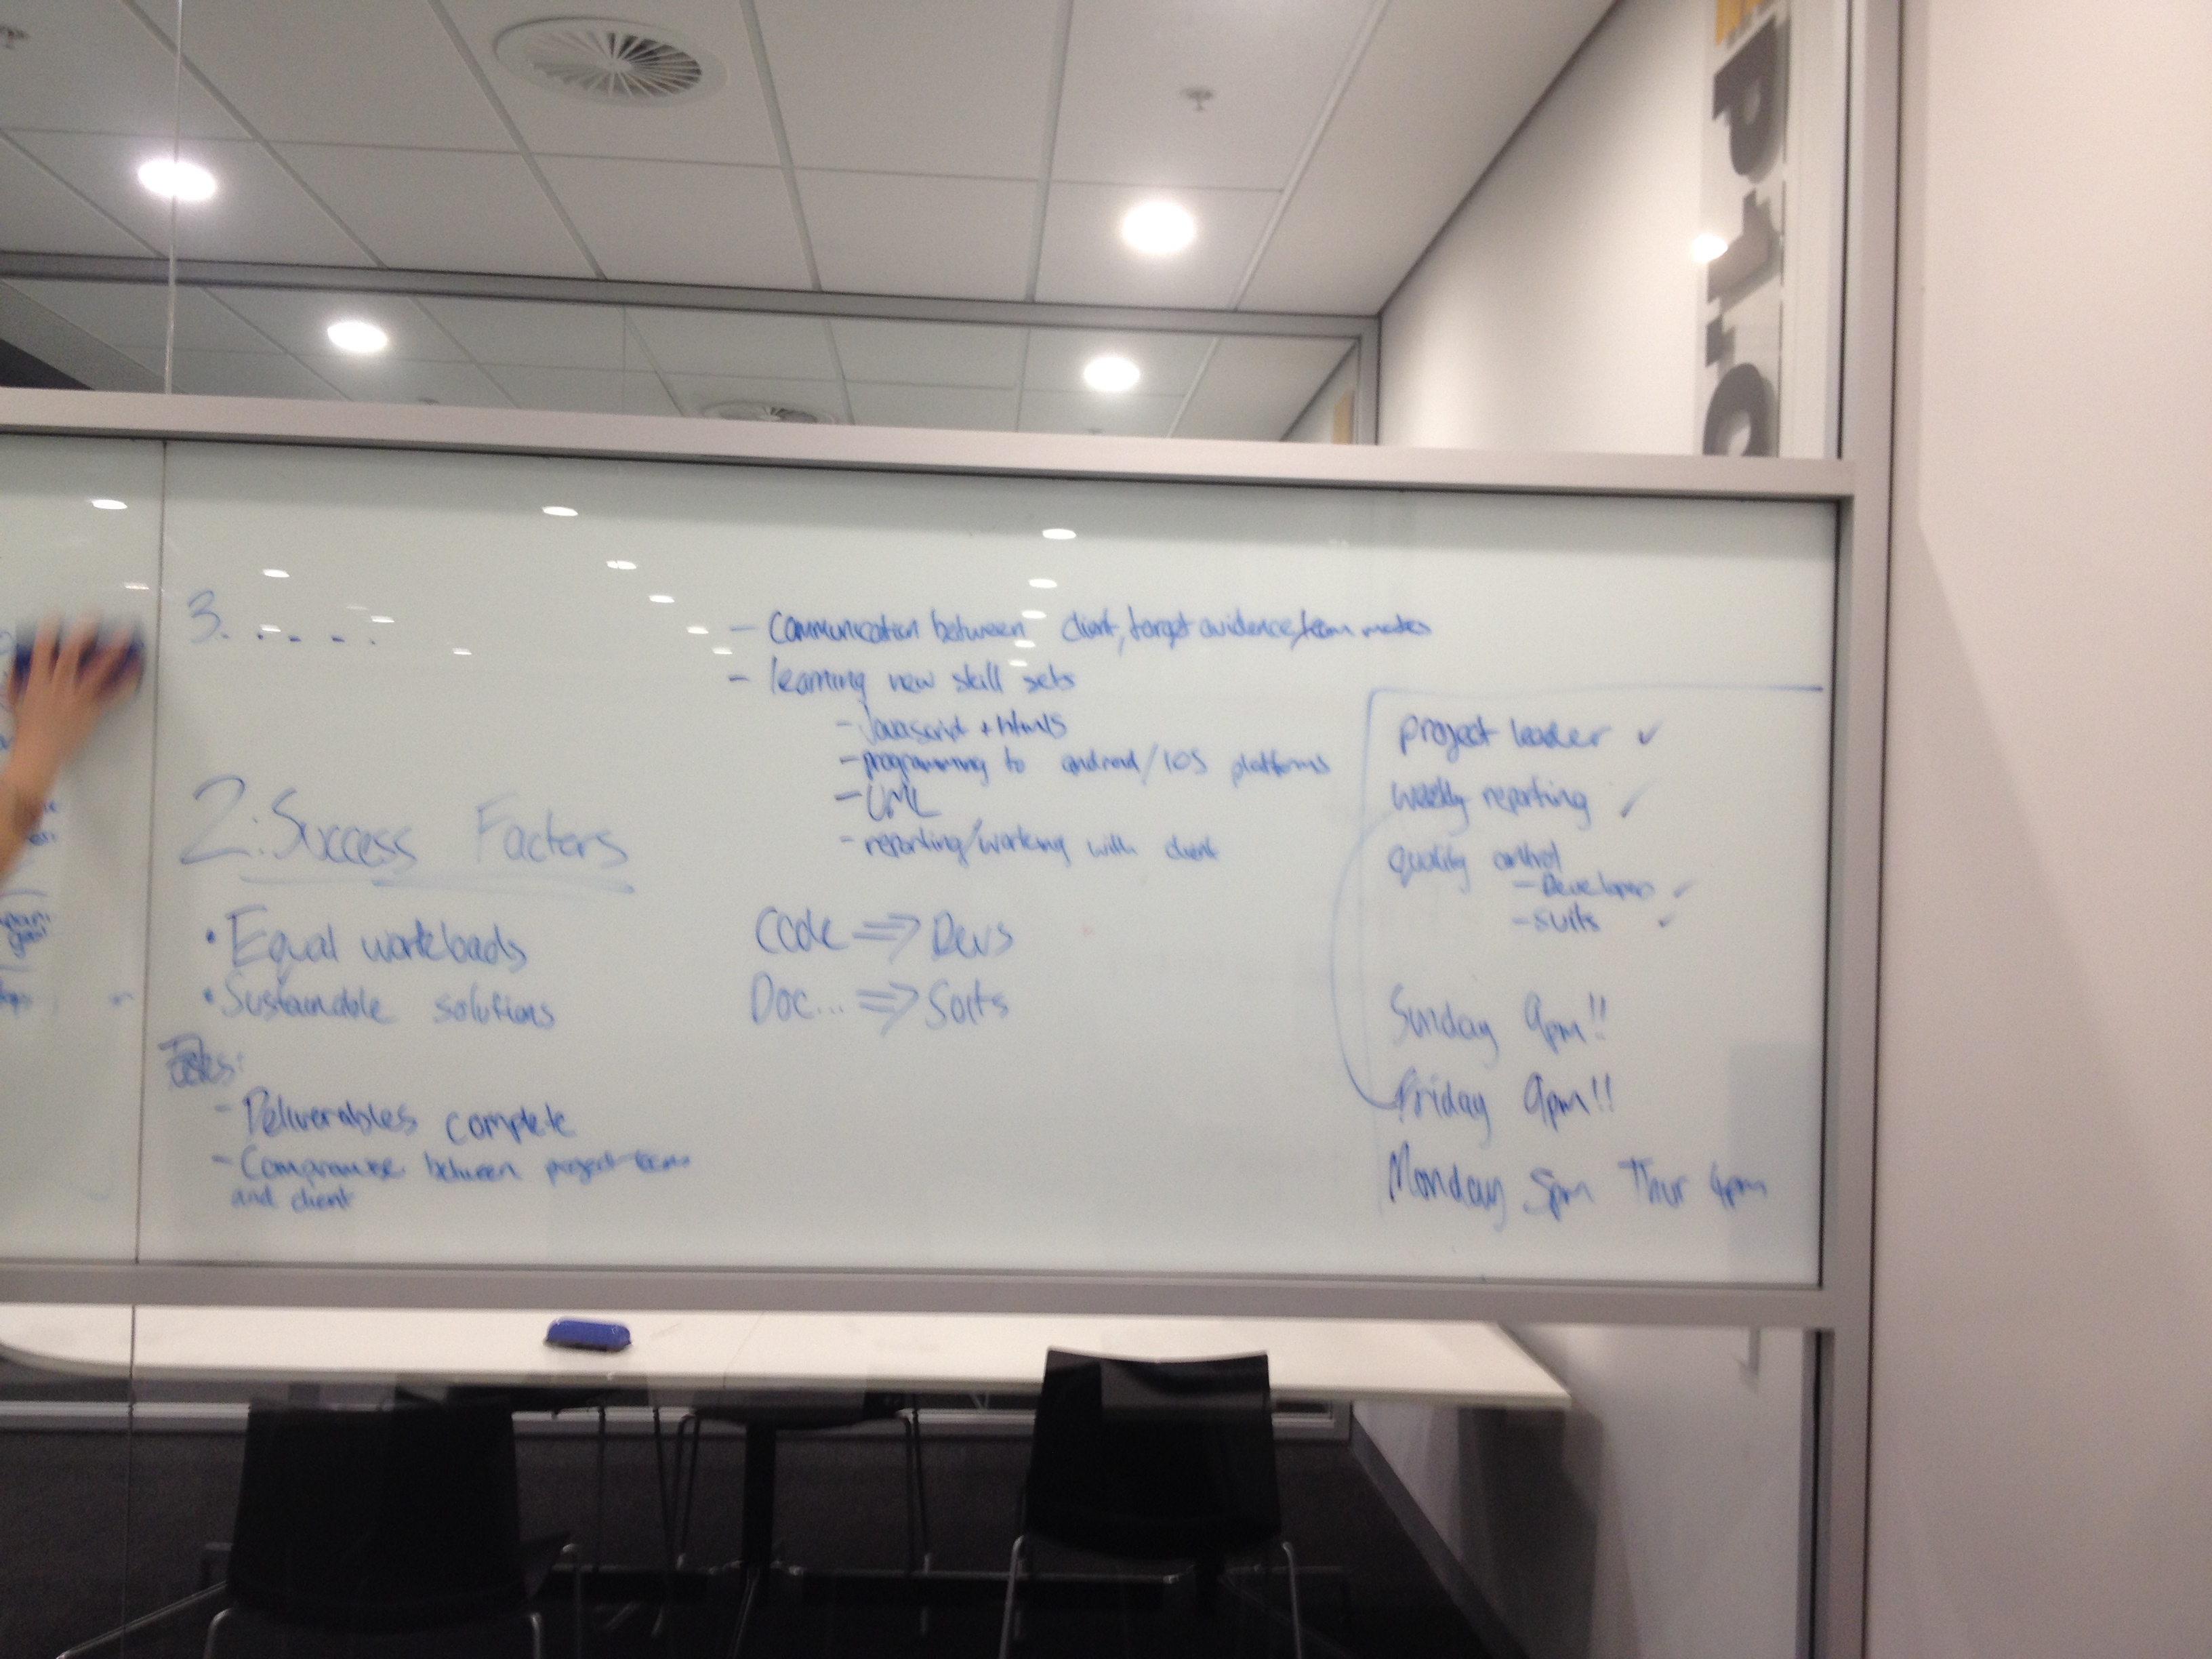 3. . - - .
2. Success Factors
• Equal workloads
• Sustainable solutions
- Deliverables complete
- Compromise between project team
and client
- Communication between client, target audience, team mates
- learning new skill sets
- Javascript + html5
- programming to android/IOS platforms
- UML
- reporting/working with client
Code => Devs
Doc... => Suits
project leader ✓
weekly reporting ✓
quality control
- Developer ✓
- suits ✓
Sunday 9pm!!
Friday 9pm!!
Monday 5pm Thur 4pm